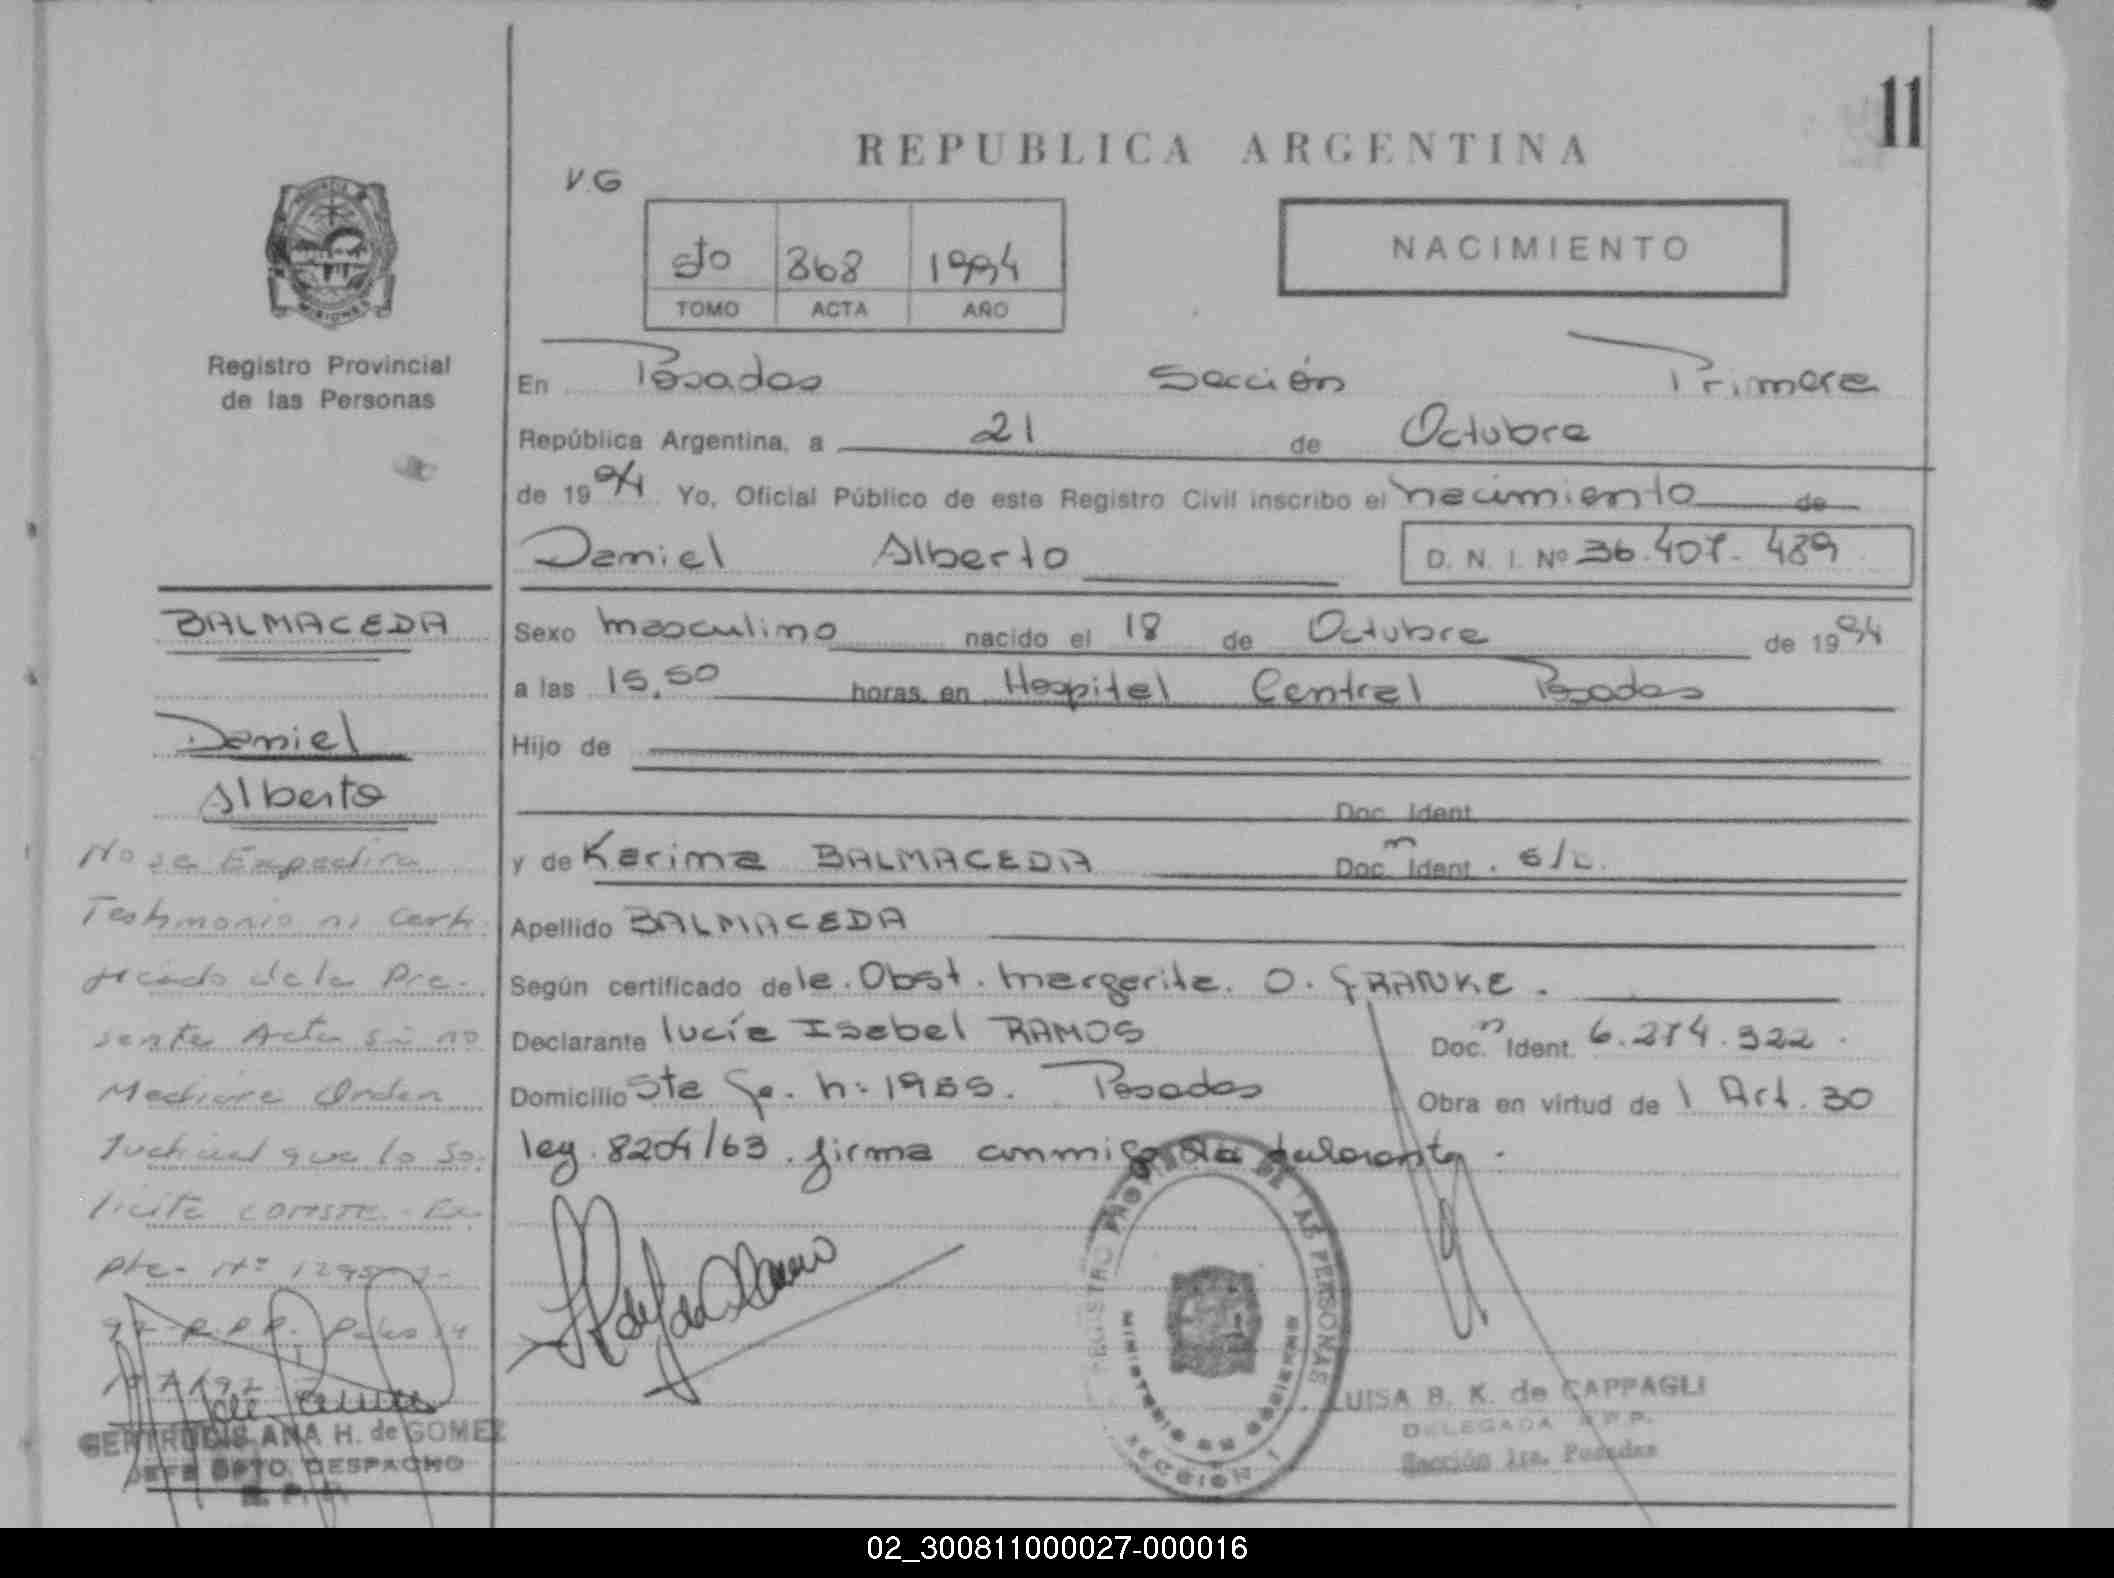 11
REPUBLICA ARGENTINA
V.G
5to 868 1994
TOMO ACTA AÑO
NACIMIENTO
MISIONES
Registro Provincial
de las Personas
En Posadas Sección Primera
República Argentina, a 21 de Octubre
de 1994 Yo, Oficial Público de este Registro Civil inscribo el nacimiento de
Daniel Alberto D. N. I. Nº 36.407.489
BALMACEDA
Daniel
Alberto
Sexo masculino nacido el 18 de Octubre de 1994
a las 15,50 horas, en Hospital Central Posadas
Hijo de
Doc. Ident.
y de Karina BALMACEDA Doc. Ident. s/c.
Apellido BALMACEDA
Según certificado de la Obst. Margarita. O. FRANKE.
Declarante Lucía Isabel RAMOS Doc. Ident. 6.274.922.
Domicilio Sta Fe. n: 1955. Posadas Obra en virtud de 1 Art. 30
ley 8204/63. firma conmigo la declarante.
No se Expedira
Testimonio ni Certi
ficado de la Pre-
sente Acta si no
Mediare Orden
Judicial que lo so
licite conste. Ex
pte. Nº
R.P.P.
GERTRUDIS ANA H. de GOMEZ
JEFE DPTO DESPACHO
R. P. P.
REGISTRO PROVINCIAL DE LAS PERSONAS
MINISTERIO DE GOBIERNO
SECCION 1
LUISA B. K. de CAPPAGLI
DELEGADA R.P.P.
Sección 1ra. Posadas
02_300811000027-000016